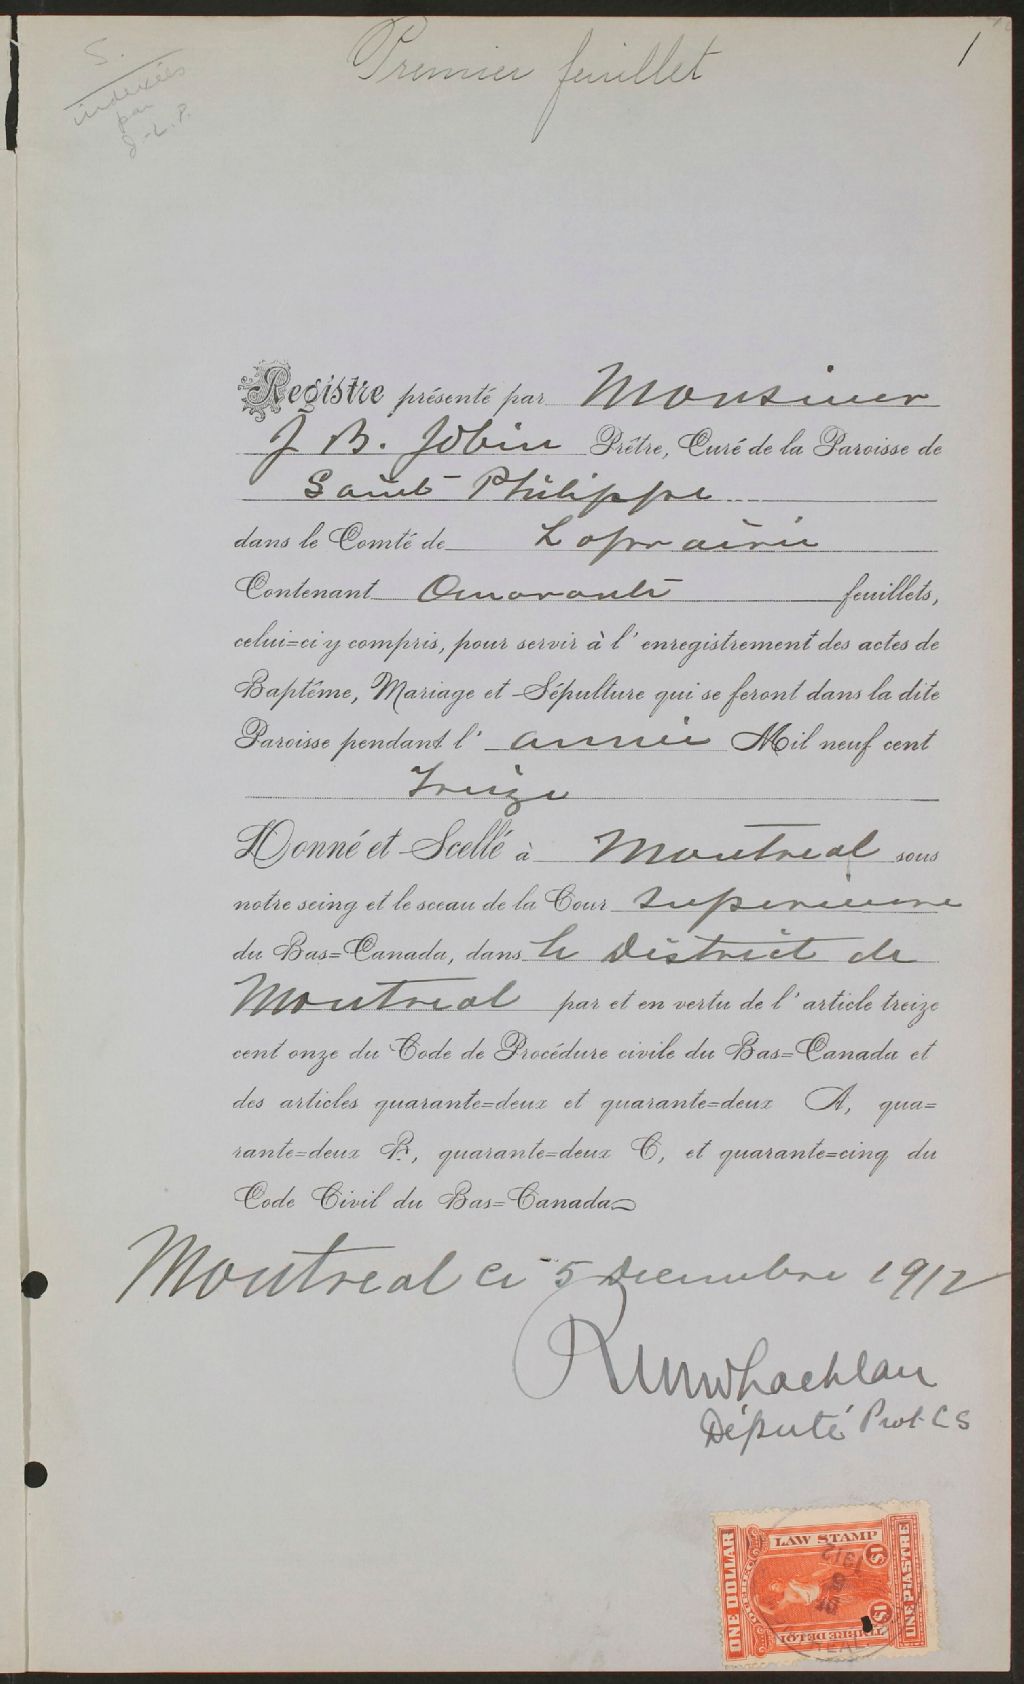 Premier feuillet
1
S.
indexées
par
J-L.P.
Registre présenté par Monsieur
J B. Jobin Prêtre, Curé de la Paroisse de
Saint Philippe
dans le Comté de Laprairie
Contenant Quarante feuillets,
celui=ci y compris, pour servir à l'enregistrement des actes de
Baptême, Mariage et Sépulture qui se feront dans la dite
Paroisse pendant l'année Mil neuf cent
Treize
Donné et Scellé à Montreal sous
notre seing et le sceau de la Cour Superieure
du Bas=Canada, dans le District de
Montreal par et en vertu de l'article treize
cent onze du Code de Procédure civile du Bas=Canada et
des articles quarante=deux et quarante=deux A, qua=
rante=deux B, quarante=deux C, et quarante=cinq du
Code Civil du Bas=Canada
Montreal ce 5 Decembre 1912
Député Prot. C S
LAW STAMP
ONE DOLLAR
$1
UNE PIASTRE
$1
TIMBRE DE LOI
1912